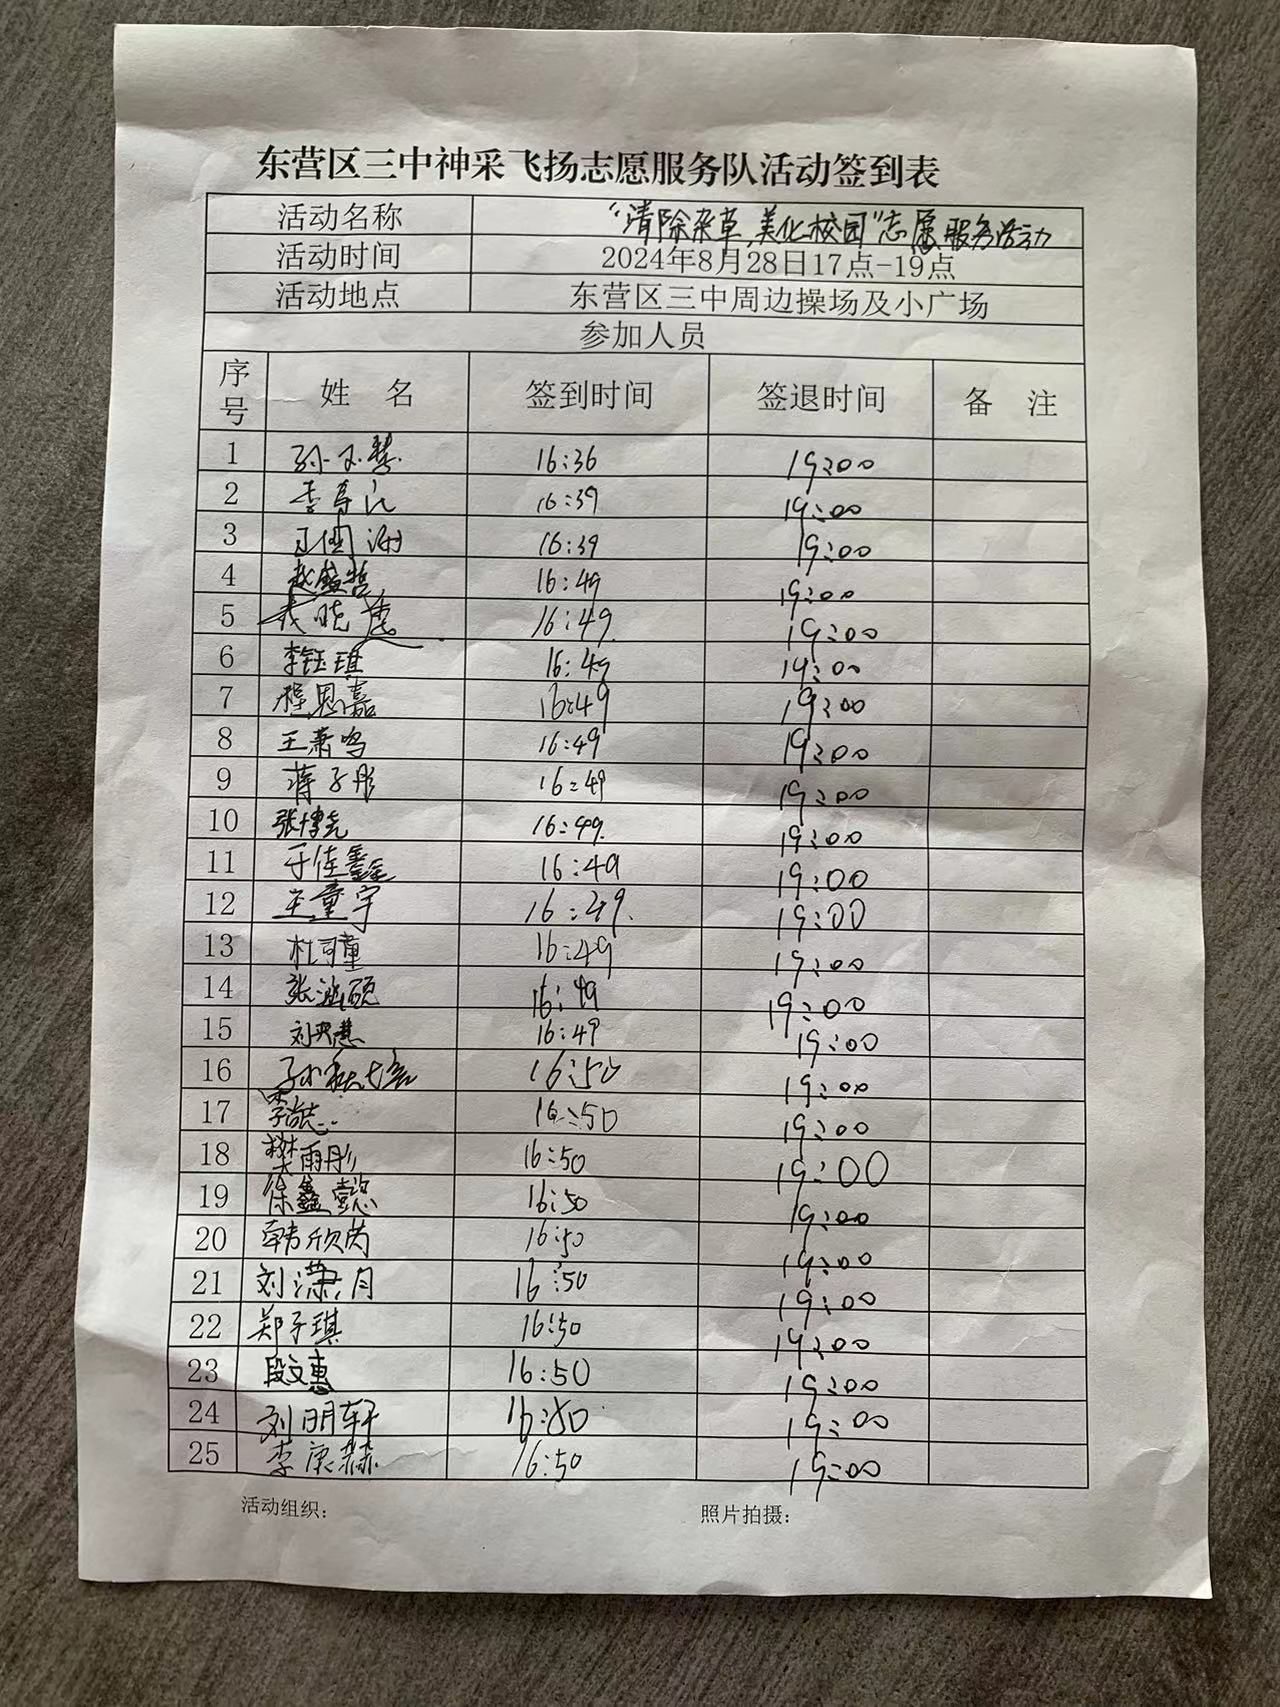 东营区三中神采飞扬志愿服务队活动签到表
活动名称 “清除杂草,美化校园”志愿服务活动
活动时间 2024年8月28日17点-19点
活动地点 东营区三中周边操场及小广场
参加人员
序号 姓 名 签到时间 签退时间 备 注
1 16:36 19:00
2 16:39 19:00
3 16:39 19:00
4 赵盛哲 16:49 19:00
5 16:49 19:00
6 李钰琪 16:49 19:00
7 程恩嘉 16:49 19:00
8 王萧鸣 16:49 19:00
9 蒋子彤 16:49 19:00
10 张博尧 16:49 19:00
11 于佳鑫 16:49 19:00
12 王童宇 16:49 19:00
13 杜可童 16:49 19:00
14 张涵硕 16:49 19:00
15 16:49 19:00
16 16:50 19:00
17 16:50 19:00
18 樊雨彤 16:50 19:00
19 徐鑫懿 16:50 19:00
20 韩欣芮 16:50 19:00
21 刘潇月 16:50 19:00
22 郑子琪 16:50 19:00
23 段文惠 16:50 19:00
24 刘明轩 16:50 19:00
25 李庚赫 16:50 19:00
活动组织: 照片拍摄: